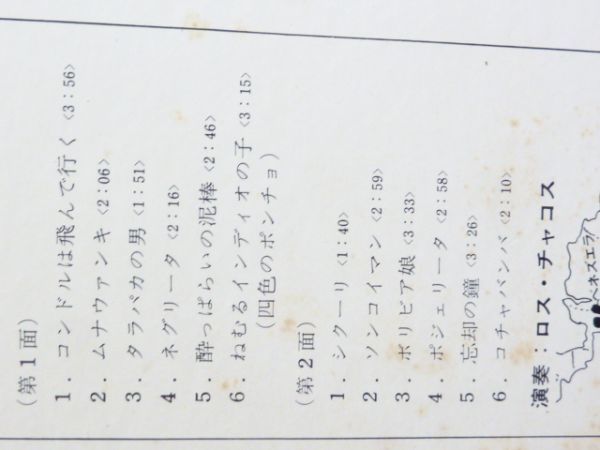 (第1面)
1. コンドルは飛んで行く〈3:56〉
2. ムナウァンキ〈2:06〉
3. タラパカの男〈1:51〉
4. ネグリータ〈2:16〉
5. 酔っぱらいの泥棒〈2:46〉
6. ねむるインディオの子〈3:15〉
(四色のポンチョ)
(第2面)
1. シクーリ〈1:40〉
2. ソンコイマン〈2:59〉
3. ボリビア娘〈3:33〉
4. ポジェリータ〈2:58〉
5. 忘却の鐘〈3:26〉
6. コチャバンバ〈2:10〉
演奏：ロス・チャコス
ベネズエラ